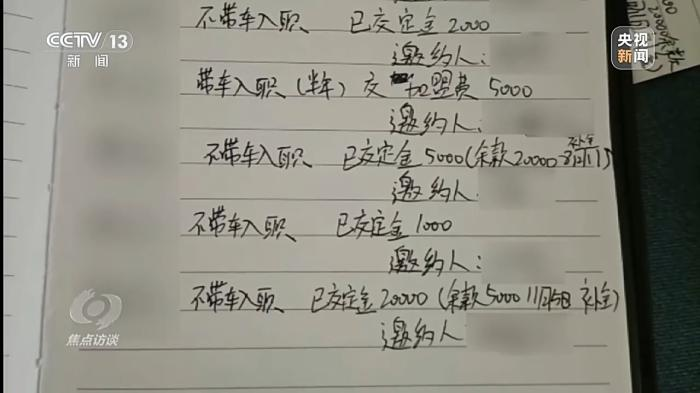 CCTV 13
新闻
央视
新闻
20000余款
不带车入职、 已交定金 2000
邀约人:
带车入职(半年) 交 加盟费 5000
邀约人:
不带车入职、 已交定金5000(余款20000 补全
邀约人:
不带车入职、 已交定金 1000
邀约人:
不带车入职、 已交定金 20000 (余款5000 11月5日 补全)
邀约人
焦点访谈